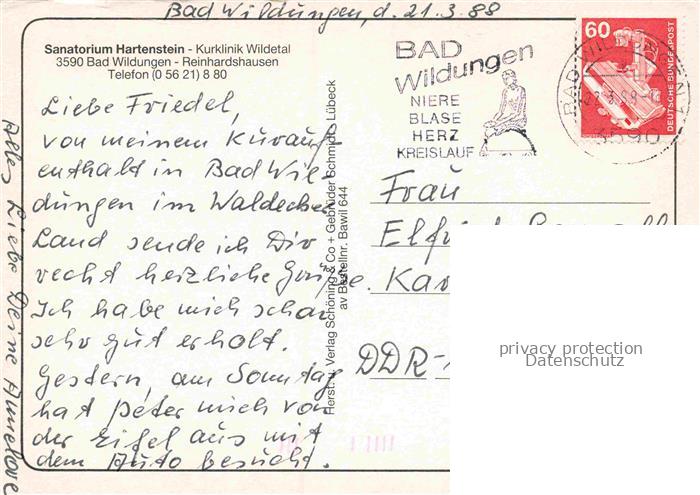 Bad Wildungen, d. 21.3.88
Sanatorium Hartenstein - Kurklinik Wildetal
3590 Bad Wildungen - Reinhardshausen
Telefon (0 56 21) 8 80
Liebe Friedel,
von meinem Kurauf-
enthalt in Bad Wil-
dungen im Waldecker
Land sende ich Dir
recht herzliche Grüße.
Ich habe mich schon
sehr gut erholt.
Gestern, am Sonntag
hat Peter mich von
der Eifel aus mit
dem Auto besucht.
Alles Liebe Deine Annelore
Herst. u. Verlag Schöning & Co + Gebrüder Schmidt, Lübeck
av Bestellnr. Bawil 644
BAD
Wildungen
NIERE
BLASE
HERZ
KREISLAUF
60
DEUTSCHE BUNDESPOST
BAD WILDUNGEN
3590
Frau
DDR-
privacy protection
Dr. Wimmer